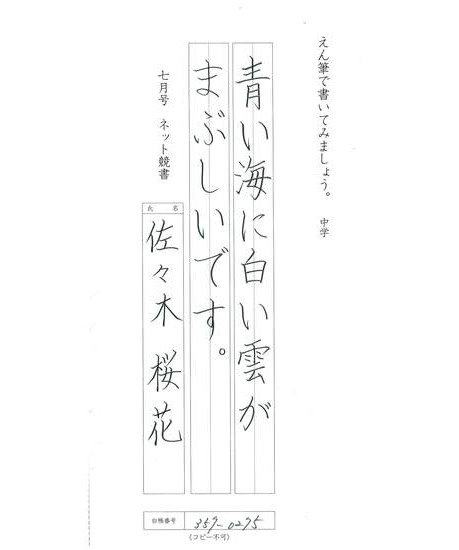 えん筆で書いてみましょう。 中学
青い海に白い雲が
まぶしいです。
七月号 ネット競書
氏 名
佐々木 桜花
台帳番号 359-0295
(コピー不可)